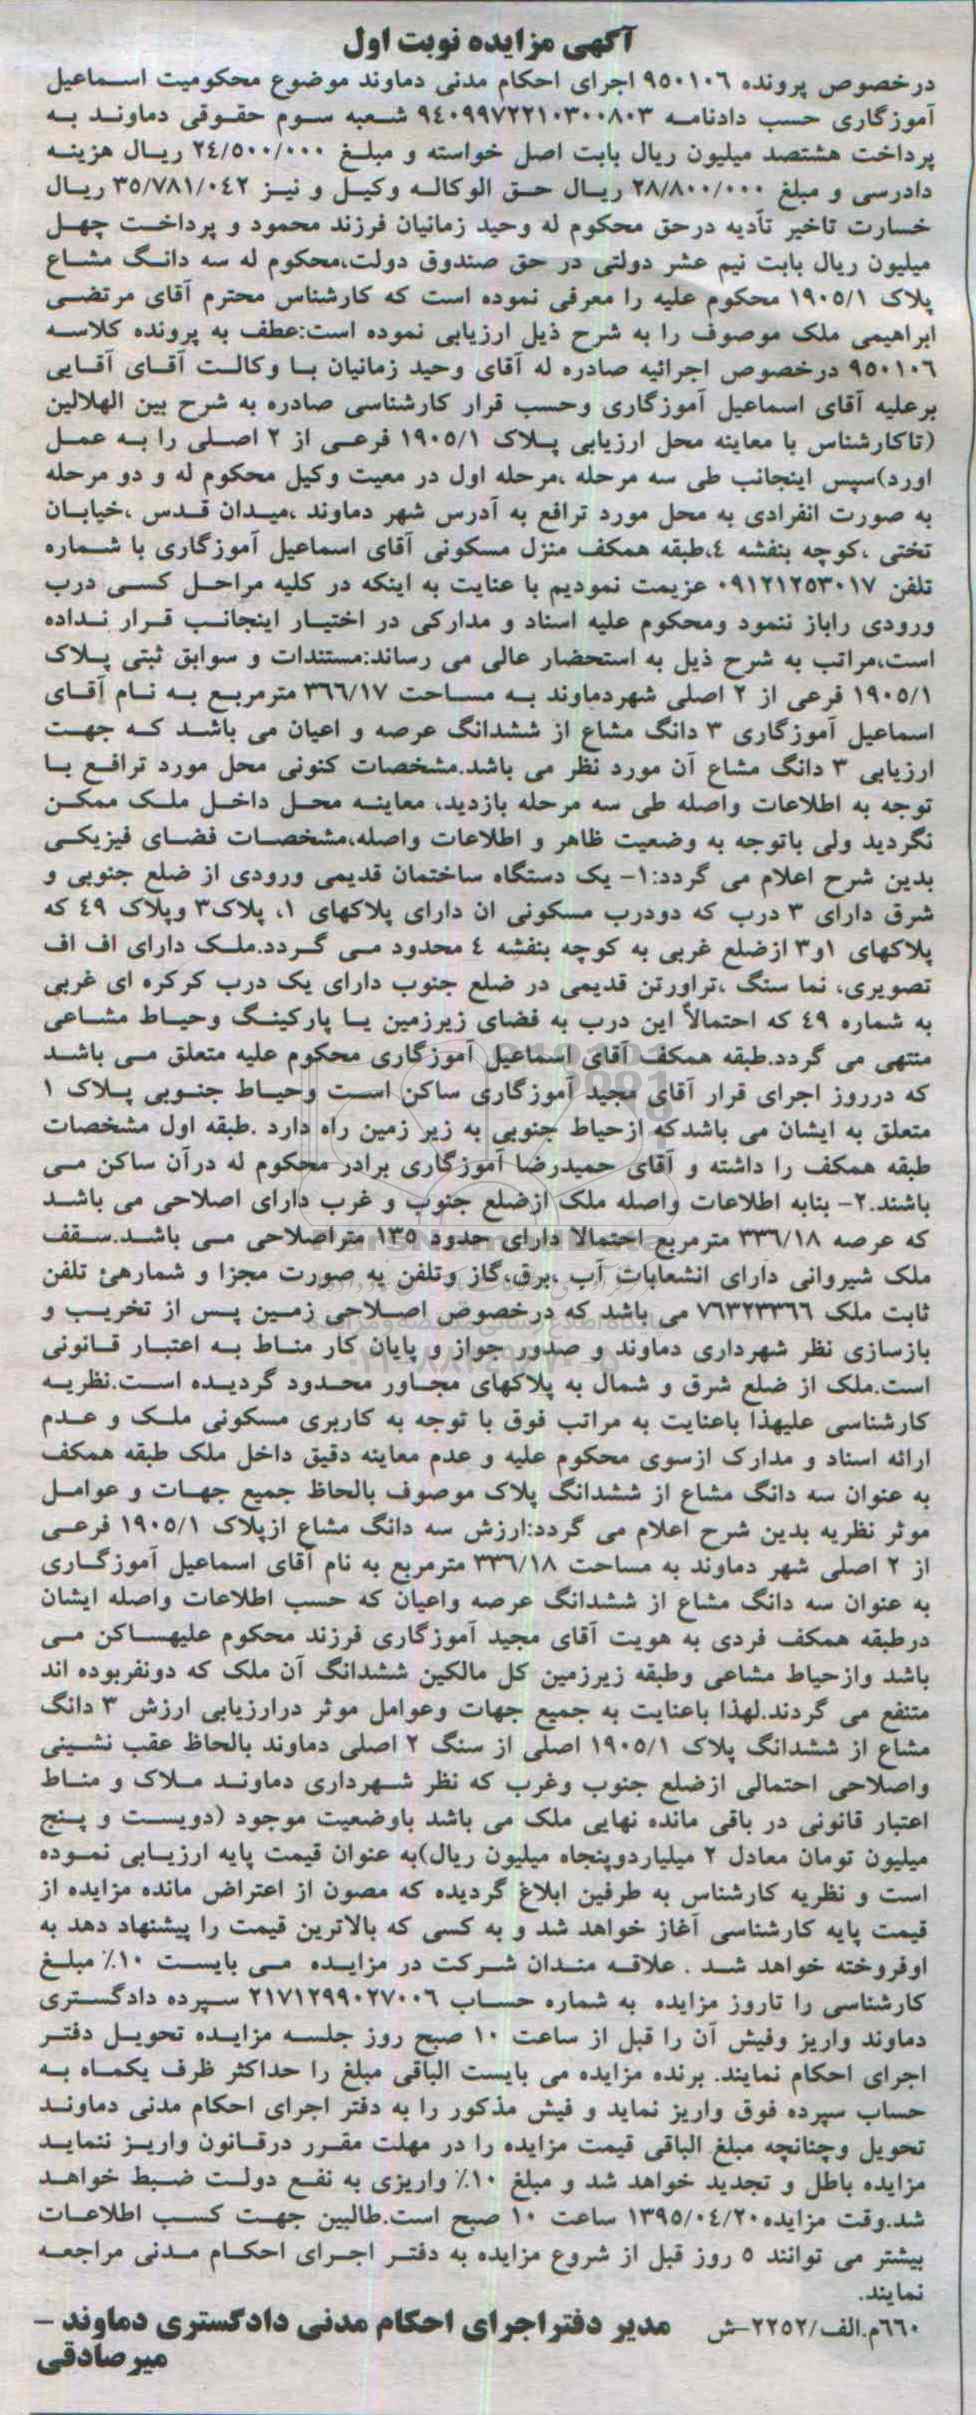 آگهی مزایده نوبت اول
درخصوص پرونده ۹۵۰۱۰۶ اجرای احکام مدنی دماوند موضوع محکومیت اسماعیل
آموزگاری حسب دادنامه ۹۴۰۹۹۷۲۲۱۰۳۰۰۸۰۳ شعبه سوم حقوقی دماوند به
پرداخت هشتصد میلیون ریال بابت اصل خواسته و مبلغ ۲۴/۵۰۰/۰۰۰ ریال هزینه
دادرسی و مبلغ ۲۸/۸۰۰/۰۰۰ ریال حق الوکاله وکیل و نیز ۳۵/۷۸۱/۰۴۲ ریال
خسارت تاخیر تأدیه درحق محکوم له وحید زمانیان فرزند محمود و پرداخت چهل
میلیون ریال بابت نیم عشر دولتی در حق صندوق دولت،محکوم له سه دانگ مشاع
پلاک ۱۹۰۵/۱ محکوم علیه را معرفی نموده است که کارشناس محترم آقای مرتضی
ابراهیمی ملک موصوف را به شرح ذیل ارزیابی نموده است:عطف به پرونده کلاسه
۹۵۰۱۰۶ درخصوص اجرائیه صادره له آقای وحید زمانیان با وکالت آقای آقایی
برعلیه آقای اسماعیل آموزگاری وحسب قرار کارشناسی صادره به شرح بین الهلالین
(تاکارشناس با معاینه محل ارزیابی پلاک ۱۹۰۵/۱ فرعی از ۲ اصلی را به عمل
اورد)سپس اینجانب طی سه مرحله ،مرحله اول در معیت وکیل محکوم له و دو مرحله
به صورت انفرادی به محل مورد ترافع به آدرس شهر دماوند ،میدان قدس ،خیابان
تختی ،کوچه بنفشه ٤،طبقه همکف منزل مسکونی آقای اسماعیل آموزگاری با شماره
تلفن ۰۹۱۲۱۲۵۳۰۱۷ عزیمت نمودیم با عنایت به اینکه در کلیه مراحل کسی درب
ورودی راباز ننمود ومحکوم علیه اسناد و مدارکی در اختیار اینجانب قرار نداده
است،مراتب به شرح ذیل به استحضار عالی می رساند:مستندات و سوابق ثبتی پلاک
۱۹۰۵/۱ فرعی از ۲ اصلی شهردماوند به مساحت ۳۶۶/۱۷ مترمربع به نام آقای
اسماعیل آموزگاری ۳ دانگ مشاع از ششدانگ عرصه و اعیان می باشد که جهت
ارزیابی ۳ دانگ مشاع آن مورد نظر می باشد.مشخصات کنونی محل مورد ترافع با
توجه به اطلاعات واصله طی سه مرحله بازدید، معاینه محل داخل ملک ممکن
نگردید ولی باتوجه به وضعیت ظاهر و اطلاعات واصله،مشخصات فضای فیزیکی
بدین شرح اعلام می گردد:۱- یک دستگاه ساختمان قدیمی ورودی از ضلع جنوبی و
شرق دارای ۳ درب که دودرب مسکونی ان دارای پلاکهای ۱، پلاک۳ وپلاک ٤۹ که
پلاکهای ۱و۳ ازضلع غربی به کوچه بنفشه ٤ محدود می گردد.ملک دارای اف اف
تصویری، نما سنگ ،تراورتن قدیمی در ضلع جنوب دارای یک درب کرکره ای غربی
به شماره ٤۹ که احتمالاً این درب به فضای زیرزمین یا پارکینگ وحیاط مشاعی
منتهی می گردد.طبقه همکف آقای اسماعیل آموزگاری محکوم علیه متعلق می باشد
که درروز اجرای قرار آقای مجید آموزگاری ساکن است وحیاط جنوبی پلاک ۱
متعلق به ایشان می باشدکه ازحیاط جنوبی به زیر زمین راه دارد .طبقه اول مشخصات
طبقه همکف را داشته و آقای حمیدرضا آموزگاری برادر محکوم له درآن ساکن می
باشند.۲- بنابه اطلاعات واصله ملک ازضلع جنوب و غرب دارای اصلاحی می باشد
که عرصه ۳۳۶/۱۸ مترمربع احتمالا دارای حدود ۱۳۵ متراصلاحی می باشد.سقف
ملک شیروانی دارای انشعابات آب ،برق،گاز وتلفن به صورت مجزا و شمارهئ تلفن
ثابت ملک ۷۶۳۲۳۳۶۶ می باشد که درخصوص اصلاحی زمین پس از تخریب و
بازسازی نظر شهرداری دماوند و صدور جواز و پایان کار مناط به اعتبار قانونی
است.ملک از ضلع شرق و شمال به پلاکهای مجاور محدود گردیده است.نظریه
کارشناسی علیهذا باعنایت به مراتب فوق با توجه به کاربری مسکونی ملک و عدم
ارائه اسناد و مدارک ازسوی محکوم علیه و عدم معاینه دقیق داخل ملک طبقه همکف
به عنوان سه دانگ مشاع از ششدانگ پلاک موصوف بالحاظ جمیع جهات و عوامل
موثر نظریه بدین شرح اعلام می گردد:ارزش سه دانگ مشاع ازپلاک ۱۹۰۵/۱ فرعی
از ۲ اصلی شهر دماوند به مساحت ۳۳۶/۱۸ مترمربع به نام آقای اسماعیل آموزگاری
به عنوان سه دانگ مشاع از ششدانگ عرصه واعیان که حسب اطلاعات واصله ایشان
درطبقه همکف فردی به هویت آقای مجید آموزگاری فرزند محکوم علیهساکن می
باشد وازحیاط مشاعی وطبقه زیرزمین کل مالکین ششدانگ آن ملک که دونفربوده اند
متنفع می گردند.لهذا باعنایت به جمیع جهات وعوامل موثر درارزیابی ارزش ۳ دانگ
مشاع از ششدانگ پلاک ۱۹۰۵/۱ اصلی از سنگ ۲ اصلی دماوند بالحاظ عقب نشینی
واصلاحی احتمالی ازضلع جنوب وغرب که نظر شهرداری دماوند ملاک و مناط
اعتبار قانونی در باقی مانده نهایی ملک می باشد باوضعیت موجود (دویست و پنج
میلیون تومان معادل ۲ میلیاردوپنجاه میلیون ریال)به عنوان قیمت پایه ارزیابی نموده
است و نظریه کارشناس به طرفین ابلاغ گردیده که مصون از اعتراض مانده مزایده از
قیمت پایه کارشناسی آغاز خواهد شد و به کسی که بالاترین قیمت را پیشنهاد دهد به
اوفروخته خواهد شد . علاقه مندان شرکت در مزایده می بایست ۱۰٪ مبلغ
کارشناسی را تاروز مزایده به شماره حساب ۲۱۷۱۲۹۹۰۲۷۰۰۶ سپرده دادگستری
دماوند واریز وفیش آن را قبل از ساعت ۱۰ صبح روز جلسه مزایده تحویل دفتر
اجرای احکام نمایند. برنده مزایده می بایست الباقی مبلغ را حداکثر ظرف یکماه به
حساب سپرده فوق واریز نماید و فیش مذکور را به دفتر اجرای احکام مدنی دماوند
تحویل وچنانچه مبلغ الباقی قیمت مزایده را در مهلت مقرر درقانون واریز ننماید
مزایده باطل و تجدید خواهد شد و مبلغ ۱۰٪ واریزی به نفع دولت ضبط خواهد
شد.وقت مزایده۱۳۹۵/۰۴/۲۰ ساعت ۱۰ صبح است.طالبین جهت کسب اطلاعات
بیشتر می توانند ۵ روز قبل از شروع مزایده به دفتر اجرای احکام مدنی مراجعه
نمایند.
۶۶۰م.الف/۲۲۵۲-ش مدیر دفتراجرای احکام مدنی دادگستری دماوند –
میرصادقی